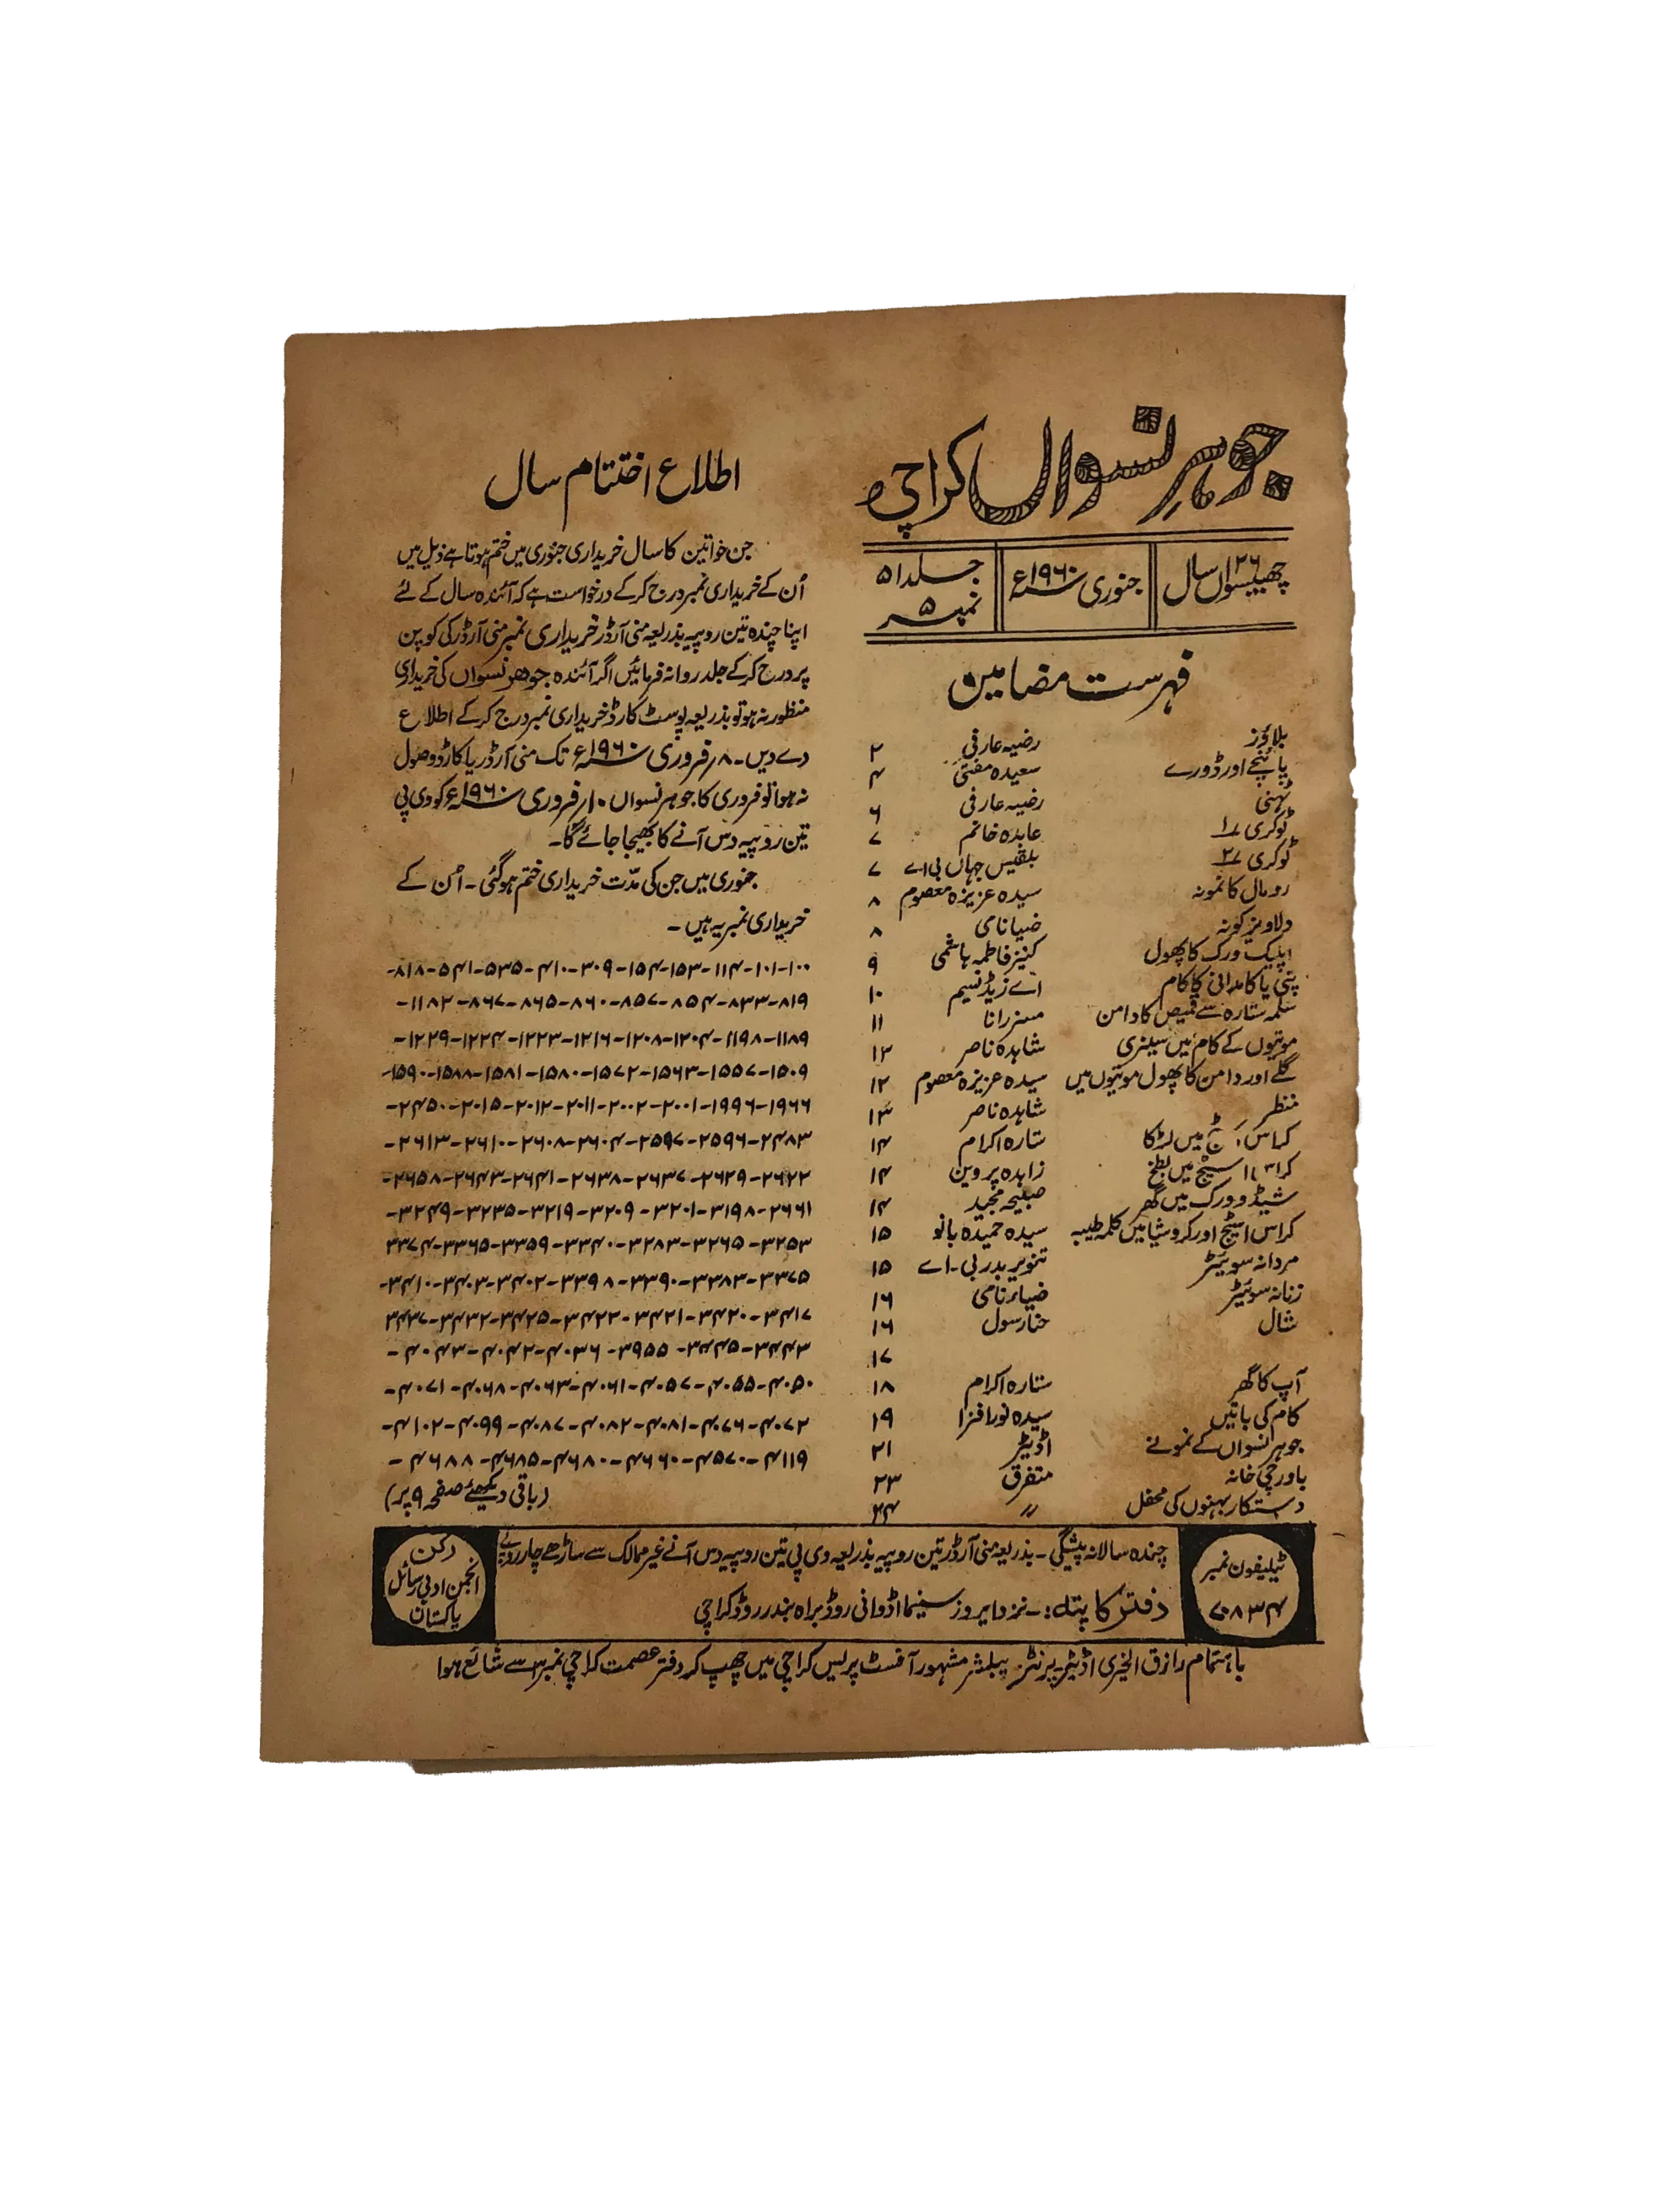 جوہرِ نسواں کراچی
چھبیسواں ۲۶ سال
جنوری ۱۹۶۰ء
جلد ۵۱
نمبر ۵
فہرست مضامین
بلاؤز رضیہ عارفی ۲
پائنچے اور ڈورے سعیدہ مفتی ۴
ٹہنی رضیہ عارفی ۶
ٹوکری ۱ عابدہ خانم ۷
ٹوکری ۲ بلقیس جہاں بی اے ۷
رومال کا نمونہ سیدہ عزیزہ معصوم ۸
دلاویز کونہ ضیا نامی ۸
اپلیک ورک کا پھول کنیز فاطمہ ہاشمی ۹
پتی یا کامدانی کا کام اے زیڈ نسیم ۱۰
سلمہ ستارہ سے قمیص کا دامن مسز رانا ۱۱
موتیوں کے کام میں سینری شاہدہ ناصر ۱۲
گلے اور دامن کا پھول موتیوں میں سیدہ عزیزہ معصوم ۱۲
منظر شاہدہ ناصر ۱۳
میں لڑکا ستارہ اکرام ۱۴
میں بطخ زاہدہ پروین ۱۴
شیڈو ورک میں گھر صبیحہ مجید ۱۴
کراس اسٹیچ اور کروشیا میں کلمہ طیبہ سیدہ حمیدہ بانو ۱۵
مردانہ سوئیٹر تنویر بدر بی۔اے ۱۵
زنانہ سوئیٹر ضیاء نامی ۱۶
شال حنا رسول ۱۶
۱۷
آپ کا گھر ستارہ اکرام ۱۸
کام کی باتیں سیدہ نور افزا ۱۹
جوہر نسواں کے نمونے اڈیٹر ۲۱
باورچی خانہ متفرق ۲۳
دستکار بہنوں کی محفل 〃 ۲۴
اطلاع اختتام سال
جن خواتین کا سال خریداری جنوری میں ختم ہوتا ہے ذیل میں
اُن کے خریداری نمبر درج کرکے درخواست ہے کہ آئندہ سال کے لئے
اپنا چندہ تین روپیہ بذریعہ منی آرڈر خریداری نمبر منی آرڈر کی کوپن
پر درج کرکے جلد روانہ فرمائیں اگر آئندہ جوہر نسواں کی خریداری
منظور نہ ہو تو بذریعہ پوسٹ کارڈ خریداری نمبر درج کرکے اطلاع
دے دیں۔ ۸ر فروری ۱۹۶۰ء تک منی آرڈر یا کارڈ وصول
نہ ہوا تو فروری کا جوہر نسواں ۱۰ر فروری ۱۹۶۰ء کو وی پی
تین روپیہ دس آنے کا بھیجا جائے گا۔
جنوری میں جن کی مدّت خریداری ختم ہوگئی۔ اُن کے
خریداری نمبر یہ ہیں۔
۱۰۰-۱۰۱-۱۱۴-۱۵۳-۱۵۴-۳۰۹-۴۱۰-۵۳۵-۵۴۱-۸۱۸-
۸۱۹-۸۳۳-۸۵۴-۸۵۷-۸۶۰-۸۶۵-۸۶۷-۱۱۸۲-
۱۱۸۹-۱۱۹۸-۱۲۰۴-۱۲۰۸-۱۲۱۶-۱۲۲۳-۱۲۲۴-۱۲۲۹-
۱۵۰۹-۱۵۵۷-۱۵۶۳-۱۵۷۲-۱۵۸۰-۱۵۸۱-۱۵۸۸-۱۵۹۰-
۱۹۶۶-۱۹۹۶-۲۰۰۱-۲۰۰۲-۲۰۱۱-۲۰۱۲-۲۰۱۵-۲۴۵۰-
۲۴۸۳-۲۵۹۶-۲۵۹۷-۲۶۰۴-۲۶۰۸-۲۶۱۰-۲۶۱۳-
۲۶۲۲-۲۶۲۹-۲۶۳۷-۲۶۳۸-۲۶۴۱-۲۶۴۳-۲۶۵۸-
۲۶۶۱-۳۱۹۸-۳۲۰۱-۳۲۰۹-۳۲۱۹-۳۲۳۵-۳۲۴۹-
۳۲۵۳-۳۲۶۵-۳۲۸۳-۳۳۴۰-۳۳۵۹-۳۳۶۵-۳۳۷۴
۳۳۷۵-۳۳۸۳-۳۳۹۰-۳۳۹۸-۳۴۰۲-۳۴۰۳-۳۴۱۰-
۳۴۱۷-۳۴۲۰-۳۴۲۱-۳۴۲۲-۳۴۲۵-۳۴۳۲-۳۴۳۷
۳۴۴۳-۳۴۴۵-۳۹۵۵-۴۰۳۶-۴۰۴۲-۴۰۴۳-
۴۰۵۰-۴۰۵۵-۴۰۵۷-۴۰۶۱-۴۰۶۳-۴۰۶۸-۴۰۷۱-
۴۰۷۲-۴۰۷۶-۴۰۸۱-۴۰۸۲-۴۰۸۷-۴۰۹۹-۴۱۰۲-
۴۱۱۹-۴۵۷۰-۴۶۶۰-۴۶۸۰-۴۶۸۵-۴۶۸۸-
(باقی دیکھئے صفحہ ۹ پر)
ٹیلیفون نمبر
۷۰۸۳۴
چندہ سالانہ پیشگی۔ بذریعہ منی آرڈر تین روپیہ بذریعہ وی پی تین روپیہ دس آنے غیر ممالک سے ساڑھے چار روپے
دفتر کا پتہ:۔ نزد ایروز سینما اڈوانی روڈ براہ بندر روڈ کراچی
رکن
انجمن ادبی رسائل
پاکستان
باہتمام رازق الخیری اڈیٹر۔ پرنٹر۔ پبلشر مشہور آفسٹ پریس کراچی میں چھپ کر دفتر عصمت کراچی نمبر ۳ سے شائع ہوا